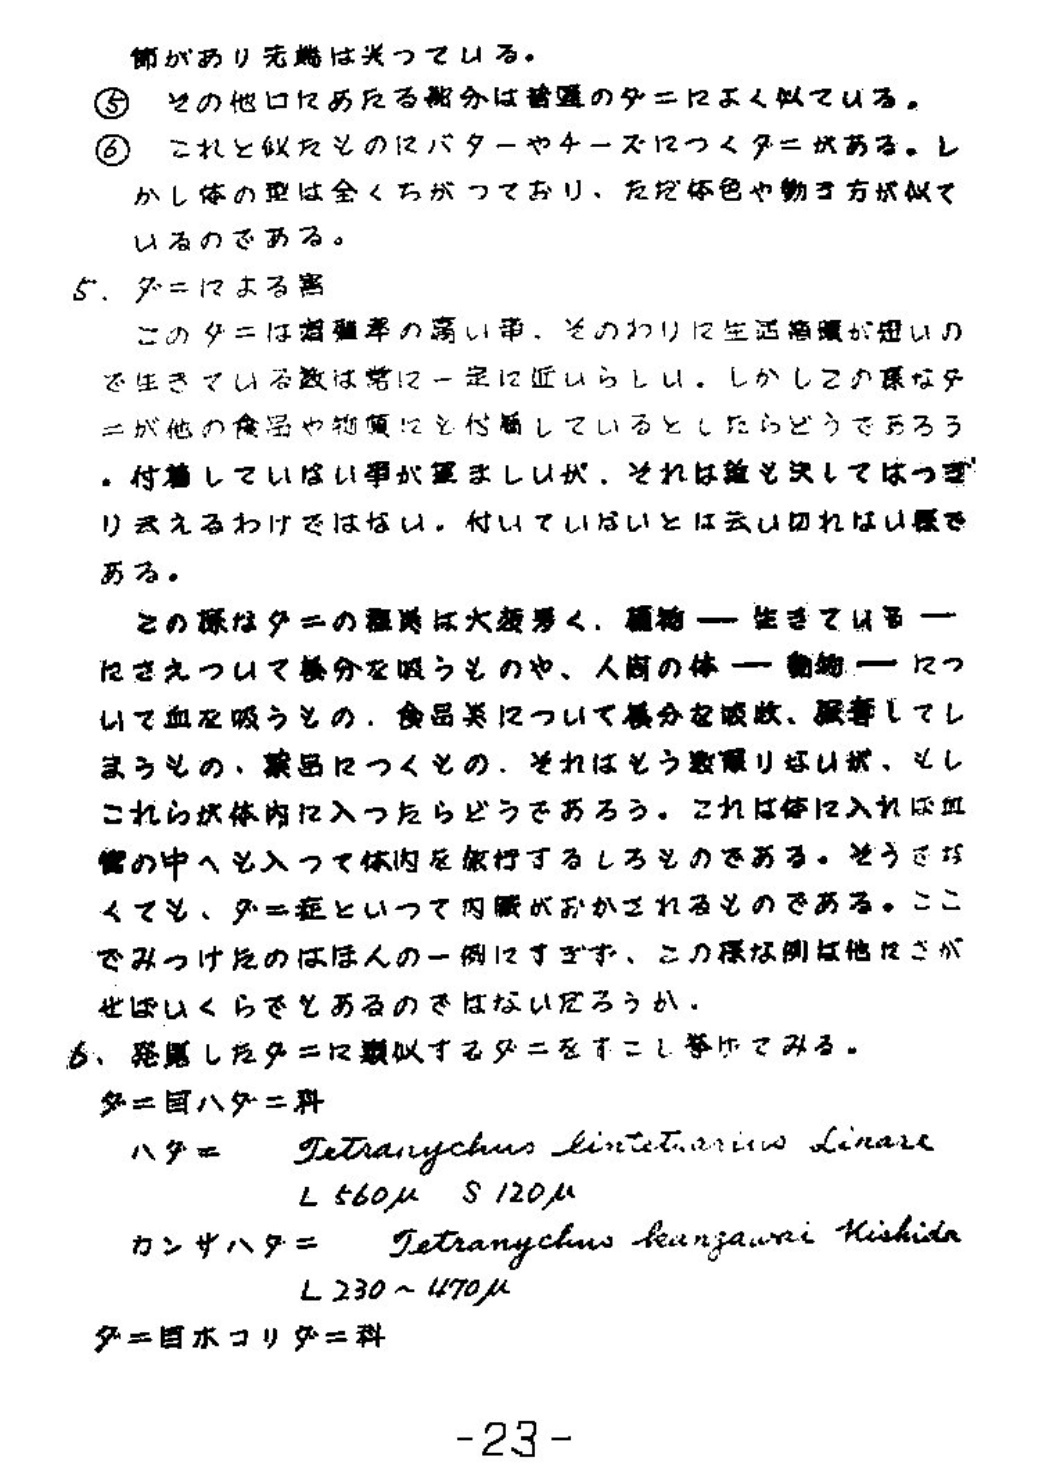 節があり先端は尖っている。
⑤ その他口にあたる部分は普通のダニによく似ている。
⑥ これと似たものにバターやチーズにつくダニがある。し
かし体の型は全くちがっており、ただ体色や動き方が似て
いるのである。
5. ダニによる害
このダニは増殖率の高い事、そのわりに生活循環が短いの
で生きている数は常に一定に近いらしい。しかしこの様なダ
ニが他の食品や物質にも付着しているとしたらどうであろう
。付着していない事が望ましいが、それは誰も決してはっき
り云えるわけではない。付いていないとは云い切れない様で
ある。
この様なダニの種類は大変多く、植物 ― 生きている ―
にさえついて養分を吸うものや、人間の体 ― 動物 ― につ
いて血を吸うもの、食品類について養分を吸収、繁着してし
まうもの、薬品につくもの、それはもう数限りないが、もし
これらが体内に入ったらどうであろう。これは体に入れば血
管の中へも入って体内を旅行するしろものである。そうでな
くても、ダニ症といって内臓がおかされるものである。ここ
でみつけたのはほんの一例にすぎず、この様な例は他にさが
せばいくらでもあるのではないだろうか。
6. 発見したダニに類似するダニをすこし挙げてみる。
ダニ目ハダニ科
ハダニ Tetranychus Linare
L 560μ S 120μ
カンザハダニ Tetranychus kanzawai Kishida
L 230～470μ
ダニ目ホコリダニ科
-23-